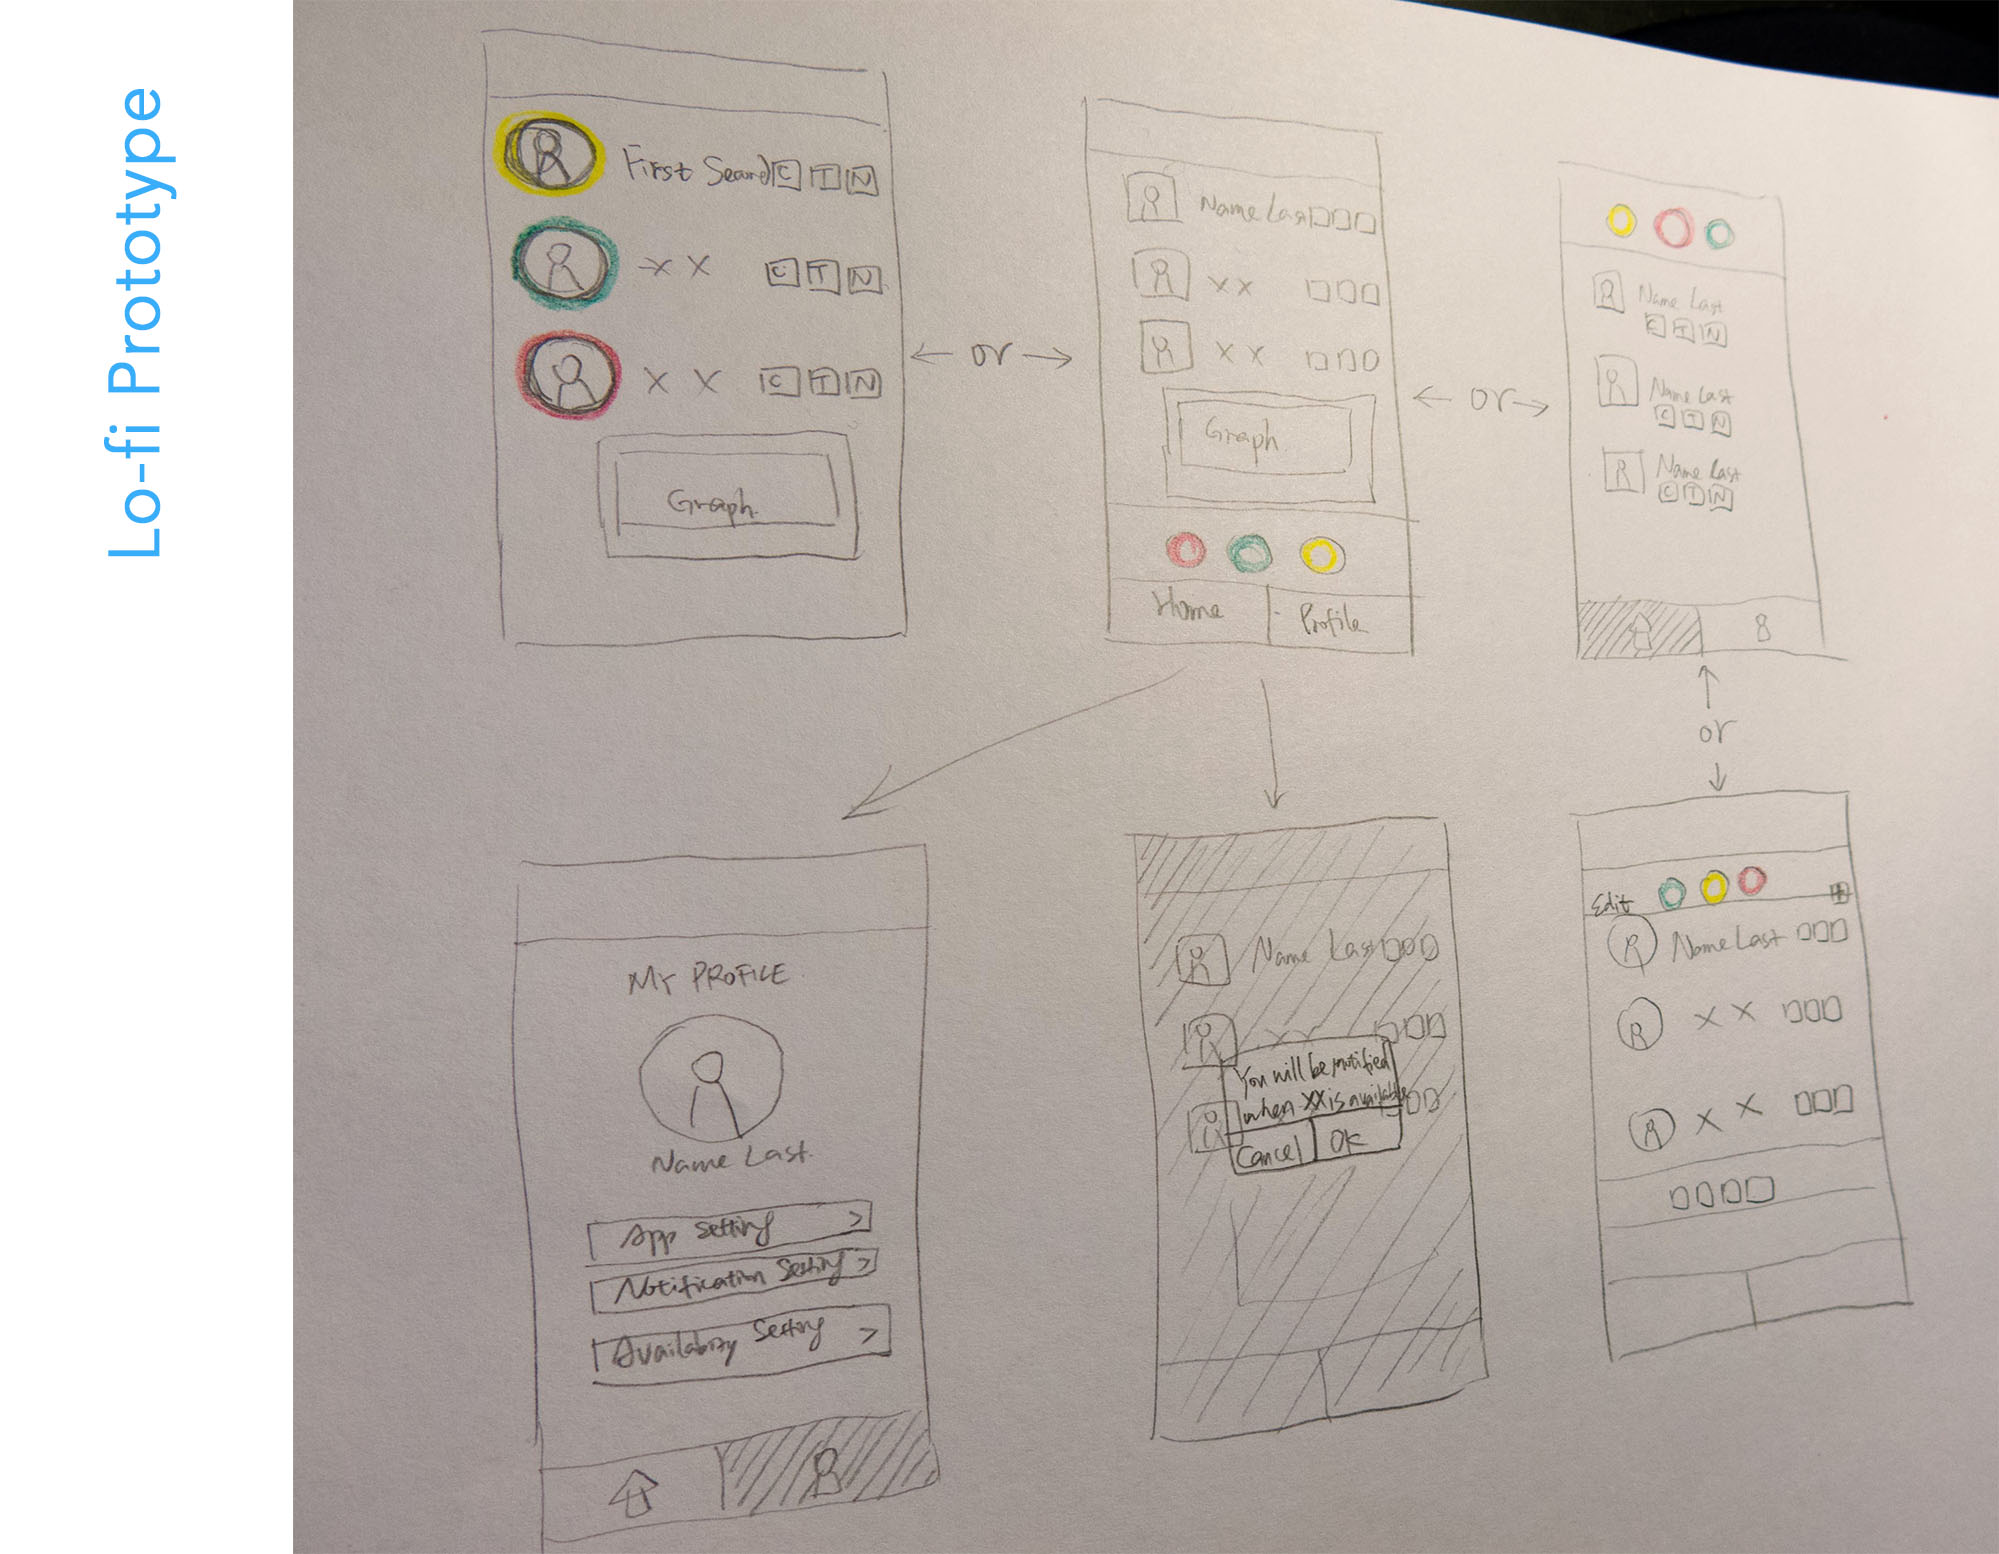 Lo-fi Prototype
First Second C T N
X X C T N
X X C T N
Graph
← or →
Name Last
X X
X X
Graph
Home Profile
← or →
Name Last
C T N
Name Last
C T N
Name Last
C T N
or
MY PROFILE
Name Last
App Setting >
Notification Setting >
Availability Setting >
Name Last
X X
You will be notified
when XX is available
Cancel OK
Edit +
Name Last
X X
X X